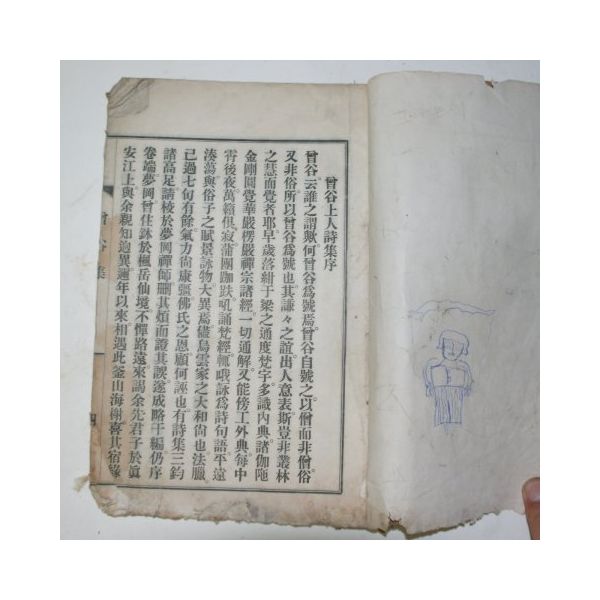 曾谷上人詩集序
曾谷云誰之謂歟何曾谷爲號焉曾谷自號之以僧而非僧俗
又非俗所以曾谷爲號也其謙々之誼出人意表斯豈非叢林
之慧而覺者耶早歲落紺于梁之通度梵字多識內典諸伽陁
金剛圓覺華嚴楞嚴禪宗諸經一切通解又能傍工外典每中
霄後夜萬籟俱寂蒲團跏趺吼誦梵經輒哦詠爲詩句語平遠
湊蕩與俗子之賦景詠物大異焉儘烏雲家之大和尙也法臘
已過七旬有餘氣力尙康彊佛氏之恩顧何誣也有詩集三鈞
諸高足請棱於夢岡禪師刪其煩而證其誤遂成略于編仍序
卷端夢岡曾住鉢於楓岳仙境不憚路遠來謁余先君子於眞
安江上與余親知迫異邇年以來相遇此釜山海榭喜其宿緣
曾谷集
四